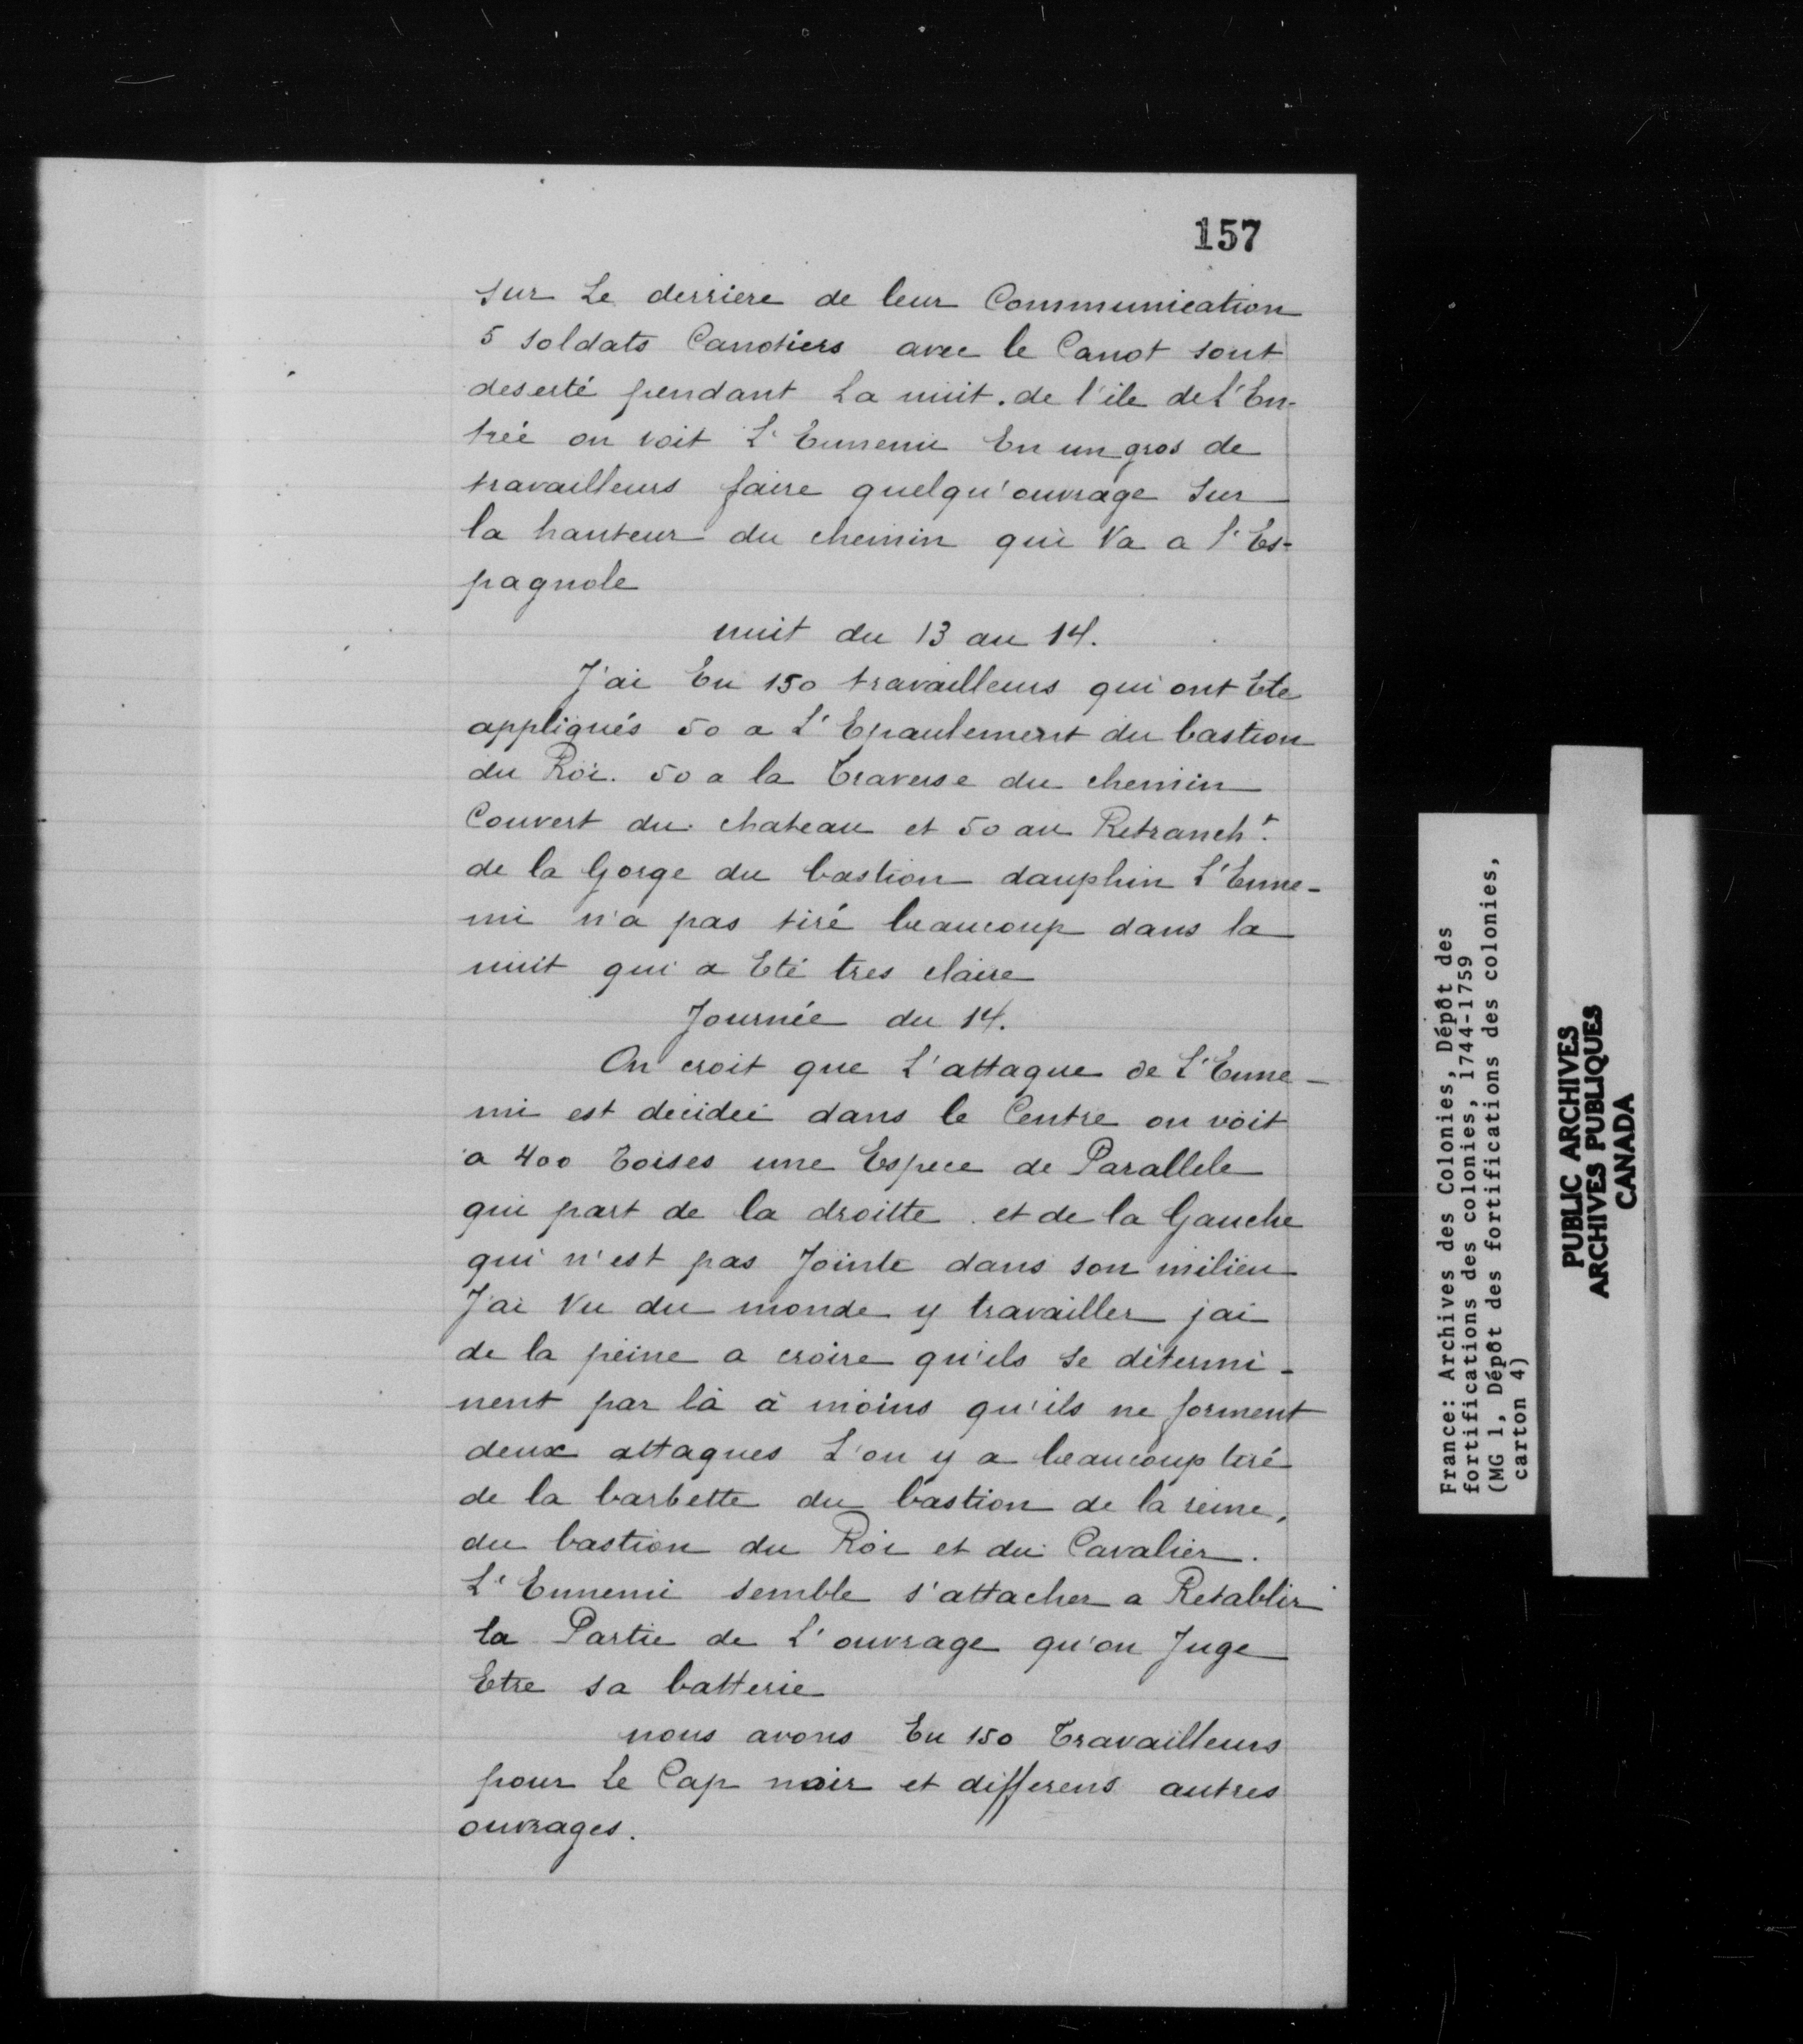 157
sur Le derriere de leur Communication
5 soldats Canotiers avec le Canot sont
deserté pendant La nuit. de l'ile de L'En-
trée on voit L'Ennemi En un gros de
travailleurs faire quelqu'ouvrage Sur
la hauteur du chemin qui Va a l'Es-
pagnole
nuit du 13 au 14.
J'ai Eu 150 travailleurs qui ont Ete
appliqués 50 a L'Epaulement du bastion
du Roi. 50 a la Traverse du chemin
Couvert du chateau et 50 au Retrancht.
de la Gorge du bastion dauphin L'Enne-
mi n'a pas tiré beaucoup dans la
nuit qui a Eté tres claire
Journée du 14.
On croit que L'attaque de L'Enne-
mi est décidée dans le Centre on voit
a 400 Toises une Espece de Parallele
qui part de la droitte et de la Gauche
qui n'est pas Jointe dans son milieu
J'ai Vu du monde y travailler jai
de la peine a croire qu'ils se détermi-
nent par là à moins qu'ils ne forment
deux attaques L'on y a beaucoup tiré
de la barbette du bastion de la reine,
du bastion du Roi et du Cavalier.
L'Ennemi semble s'attacher a Retablir
la Partie de L'ouvrage qu'on Juge
Etre sa batterie
nous avons Eu 150 Travailleurs
pour Le Cap noir et differens autres
ouvrages.
France: Archives des Colonies, Dépôt des
fortifications des colonies, 1744-1759
(MG 1, Dépôt des fortifications des colonies,
carton 4)
PUBLIC ARCHIVES
ARCHIVES PUBLIQUES
CANADA